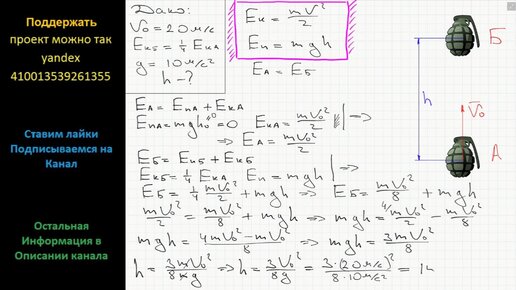 Поддержать
проект можно так
yandex
410013539261355
Ставим лайки
Подписываемся на
Канал
Остальная
Информация в
Описании канала
Дано:
V₀ = 20 м/с
Eкб = 1/4 EкА
g = 10 м/с²
h - ?
Eк = mV²/2
Eп = mgh
EА = EБ
EА = EпА + EкА
EпА = mgh₀ = 0 EкА = mV₀²/2 | ⇒
⇒ EА = mV₀²/2
EБ = EпБ + EкБ
EкБ = 1/4 EкА Eп = mgh | ⇒
EБ = 1/4 mV₀²/2 + mgh ⇒ EБ = mV₀²/8 + mgh
mV₀²/2 = mV₀²/8 + mgh ⇒ mgh = 4/ mV₀²/2 - mV₀²/8
mgh = 4mV₀² - mV₀²/8 ⇒ mgh = 3mV₀²/8
h = 3mV₀²/8mg ⇒ h = 3V₀²/8g = 3·(20м/с)²/8·10м/с² =
Б
h
V₀
А